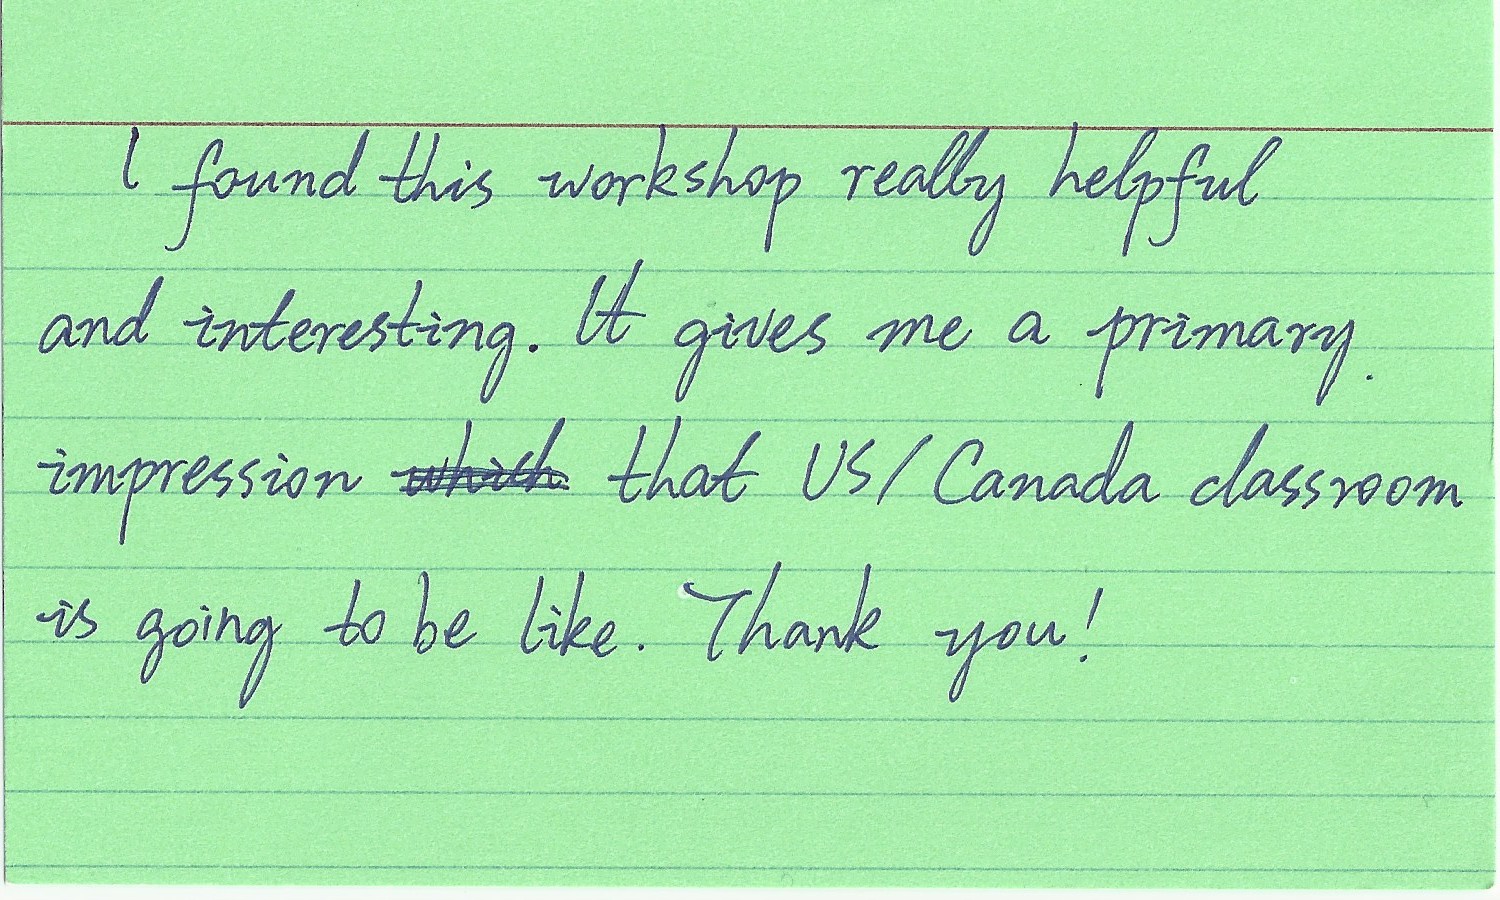 I found this workshop really helpful
and interesting. It gives me a primary
impression which that US/Canada classroom
is going to be like. Thank you!